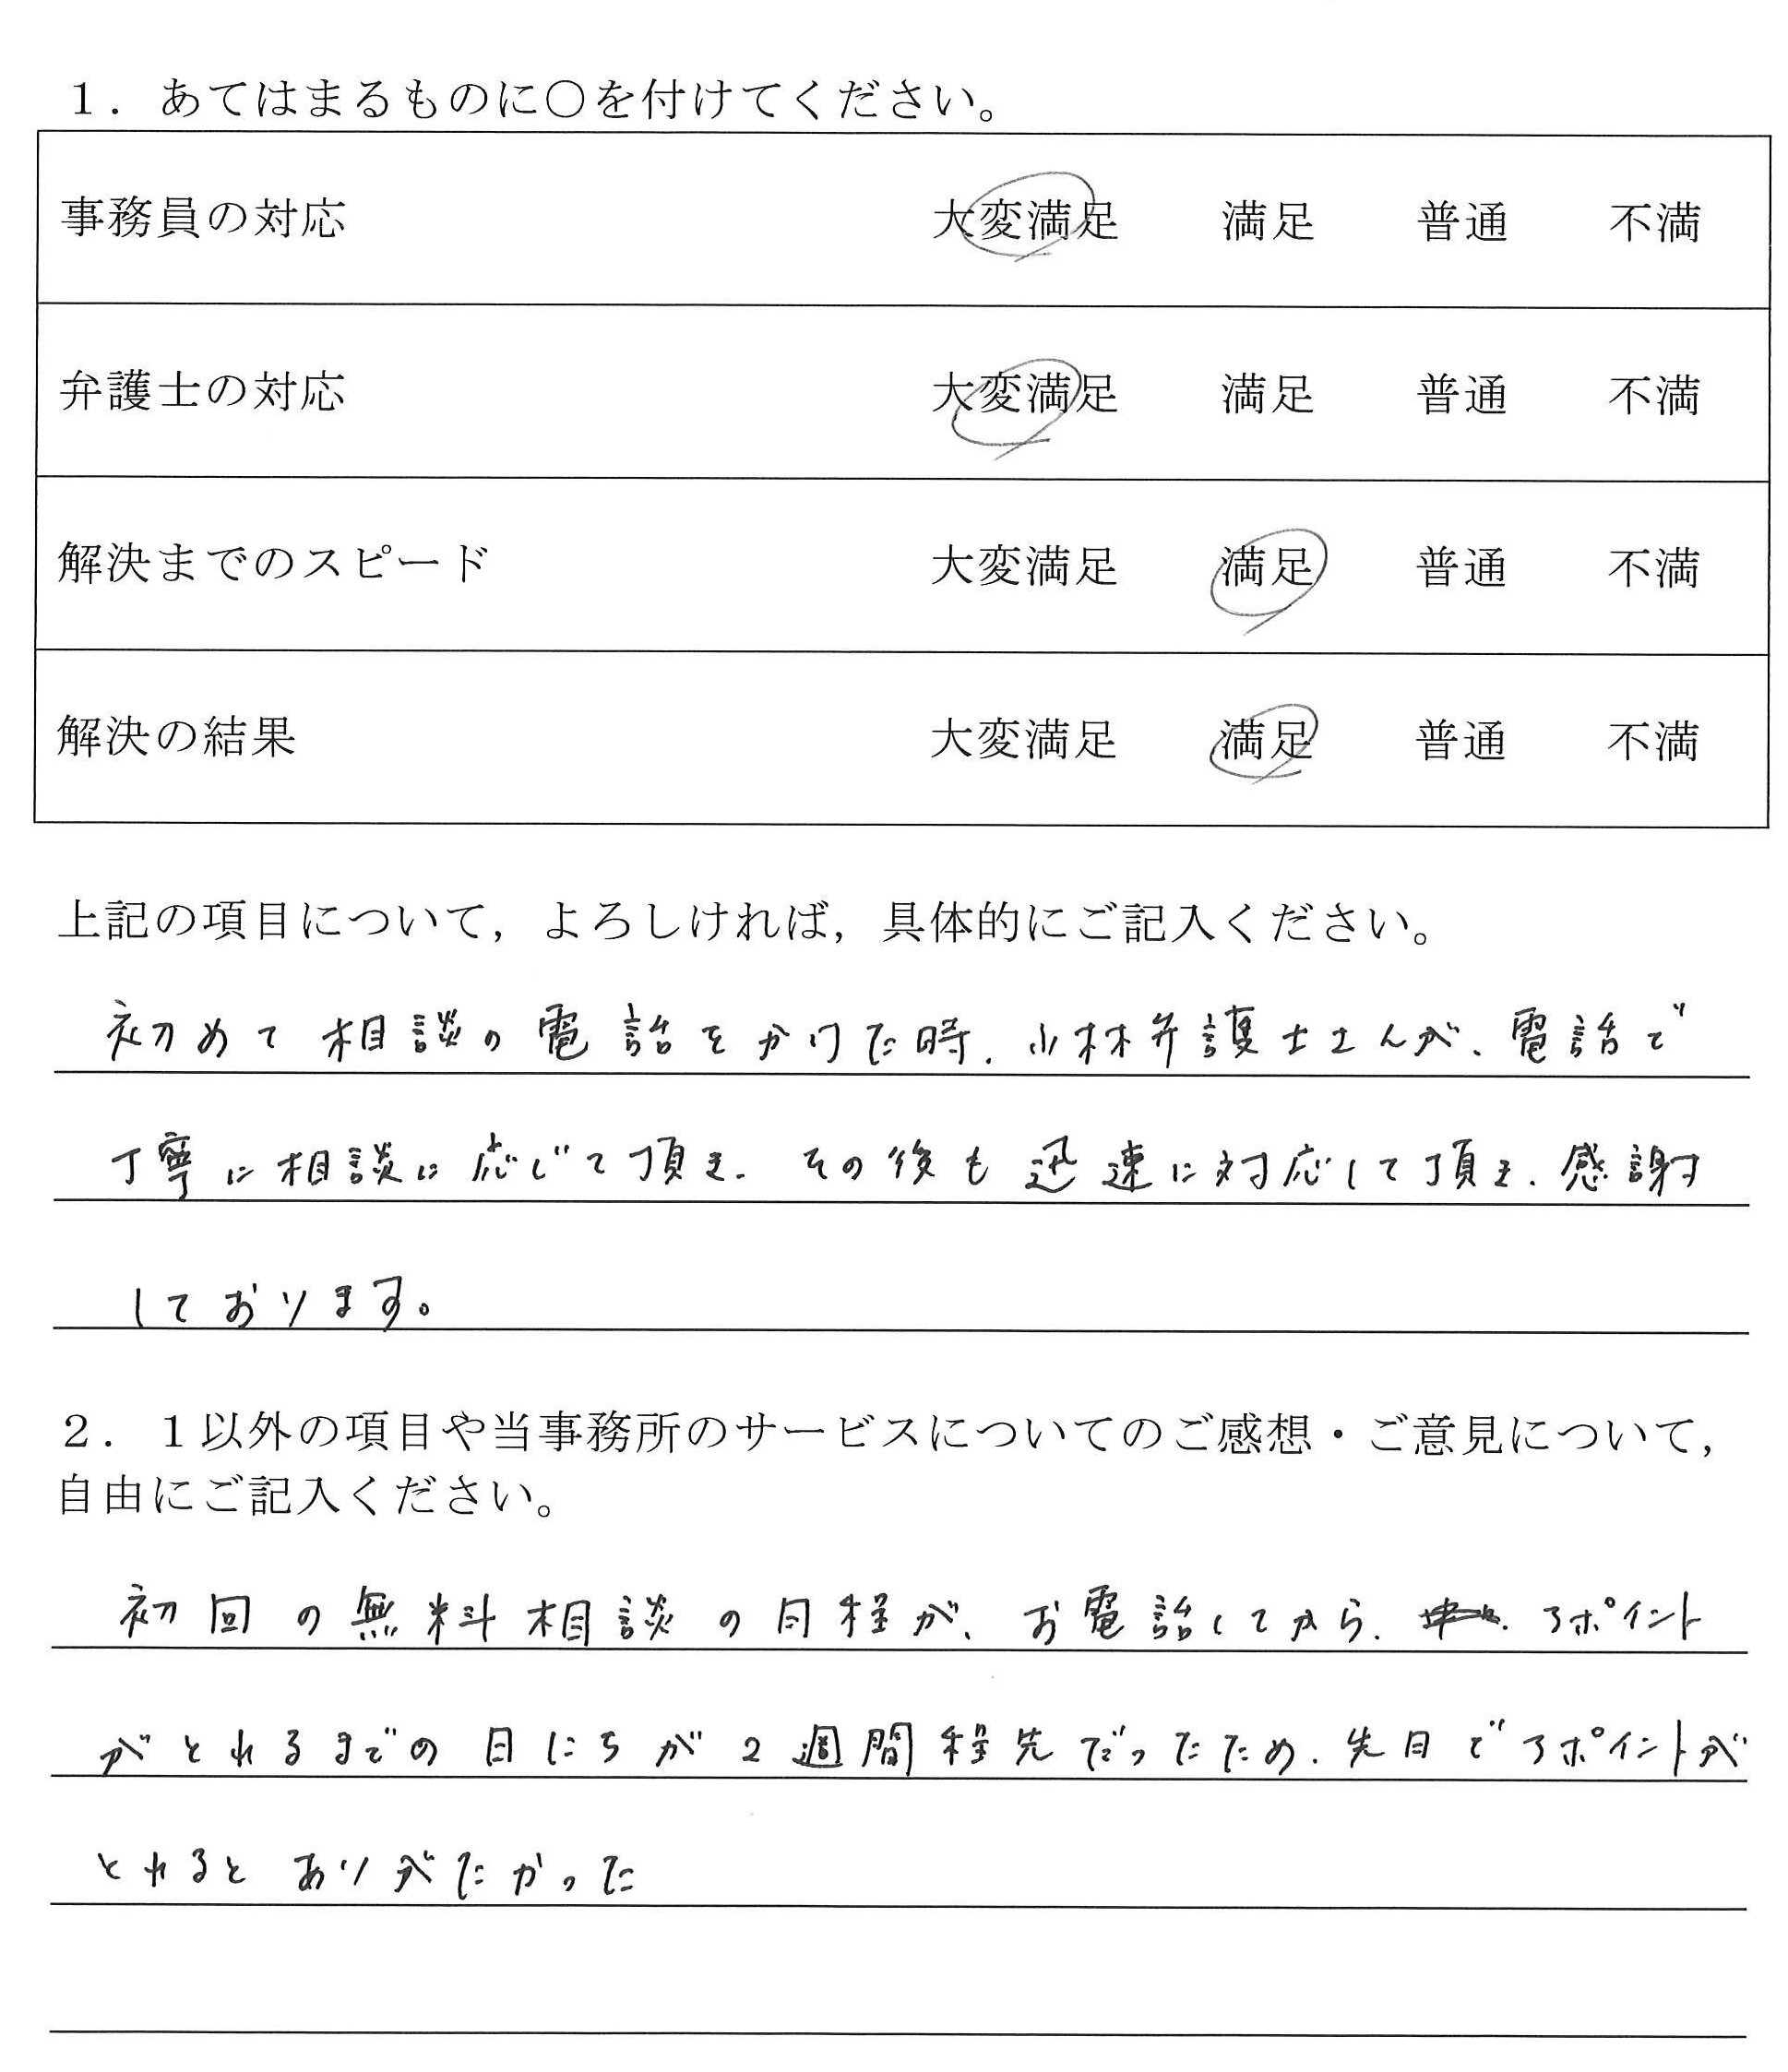 1．あてはまるものに○を付けてください。
事務員の対応 大変満足 満足 普通 不満
弁護士の対応 大変満足 満足 普通 不満
解決までのスピード 大変満足 満足 普通 不満
解決の結果 大変満足 満足 普通 不満
上記の項目について，よろしければ，具体的にご記入ください。
初めて相談の電話をかけた時、小林弁護士さんが、電話で
丁寧に相談に応じて頂き、その後も迅速に対応して頂き、感謝
しております。
2．1以外の項目や当事務所のサービスについてのご感想・ご意見について，
自由にご記入ください。
初回の無料相談の日程が、お電話してから、アポイント
がとれるまでの日にちが2週間程先だったため、先日でアポイントが
とれるとありがたかった